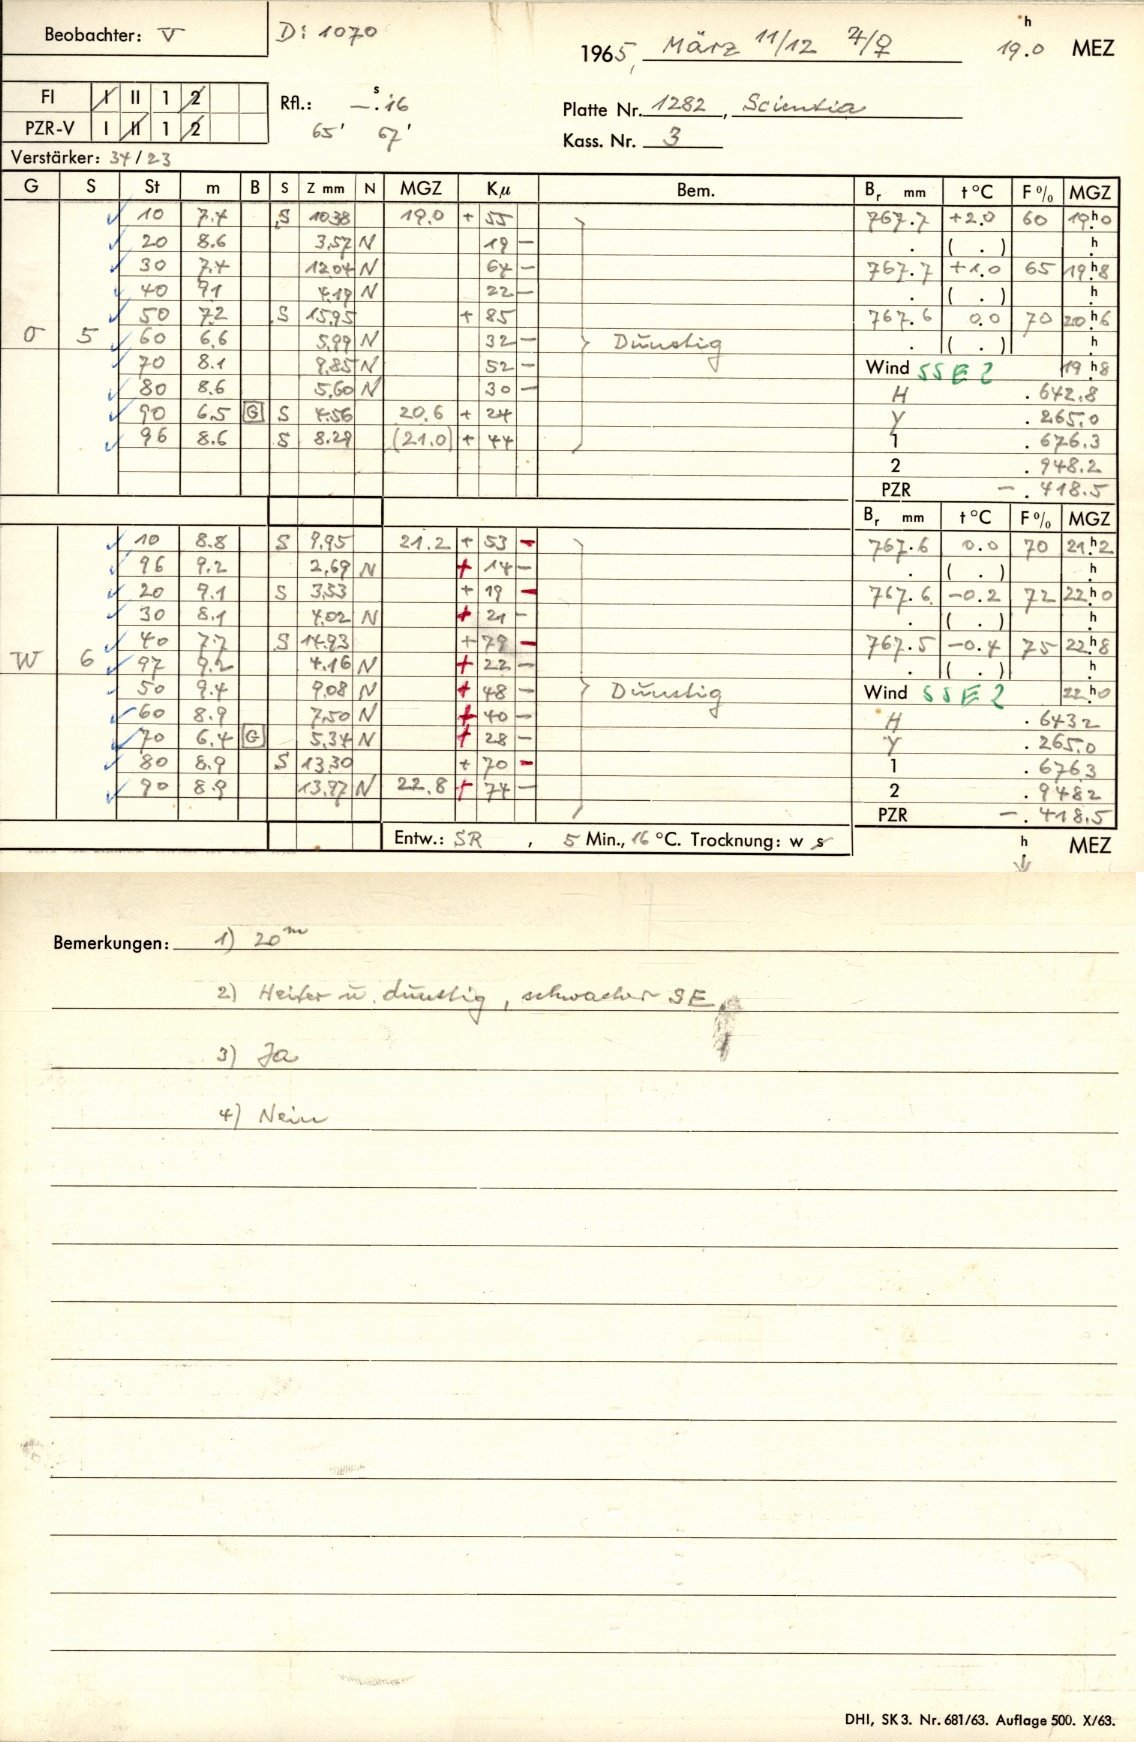 Beobachter: V
D: 1070
1965, März 11/12 ♃/♀ 19.ʰ0 MEZ
FI I II 1 2
PZR-V I II 1 2
Rfl.: —.ˢ16
65' 67'
Platte Nr. 1282, Scientia
Kass. Nr. 3
Verstärker: 34/23
G S St m B S Z mm N MGZ Kµ Bem. Bᵣ mm t °C F % MGZ
10 7.4 S 10.38 19.0 + 55 767.7 +2.0 60 19.ʰ0
20 8.6 3.57 N 19 – . ( . ) .ʰ
30 7.4 12.04 N 64 – 767.7 +1.0 65 19.ʰ8
40 9.1 4.19 N 22 – . ( . ) .ʰ
50 7.2 S 15.95 + 85 767.6 0.0 70 20.ʰ6
O 5 60 6.6 5.99 N 32 – Dunstig . ( . ) .ʰ
70 8.1 9.85 N 52 – Wind SSE 2 19.ʰ8
80 8.6 5.60 N 30 – H .642.8
90 6.5 G S 4.56 20.6 + 24 Y .265.0
96 8.6 S 8.29 (21.0) + 44 1 .676.3
2 .948.2
PZR –.418.5
Bᵣ mm t °C F % MGZ
10 8.8 S 9.95 21.2 + 53 – 767.6 0.0 70 21.ʰ2
96 9.2 2.69 N + 14 – . ( . ) .ʰ
20 9.1 S 3.53 + 19 – 767.6 –0.2 72 22.ʰ0
30 8.1 4.02 N + 21 – . ( . ) .ʰ
40 7.7 S 14.93 + 79 – 767.5 –0.4 75 22.ʰ8
W 6 97 9.2 4.16 N + 22 – . ( . ) .ʰ
50 9.4 9.08 N + 48 – Dunstig Wind SSE 2 22.ʰ0
60 8.9 7.50 N + 40 – H .643.2
70 6.4 G 5.34 N + 28 – Y .265.0
80 8.9 S 13.30 + 70 – 1 .676.3
90 8.9 13.97 N 22.8 + 74 – 2 .948.2
PZR –.418.5
Entw.: SR , 5 Min., 16 °C. Trocknung: w s
ʰ MEZ
Bemerkungen: 1) 20ᵐ
2) Heiter u. dunstig, schwacher SE
3) Ja
4) Nein
DHI, SK 3. Nr. 681/63. Auflage 500. X/63.